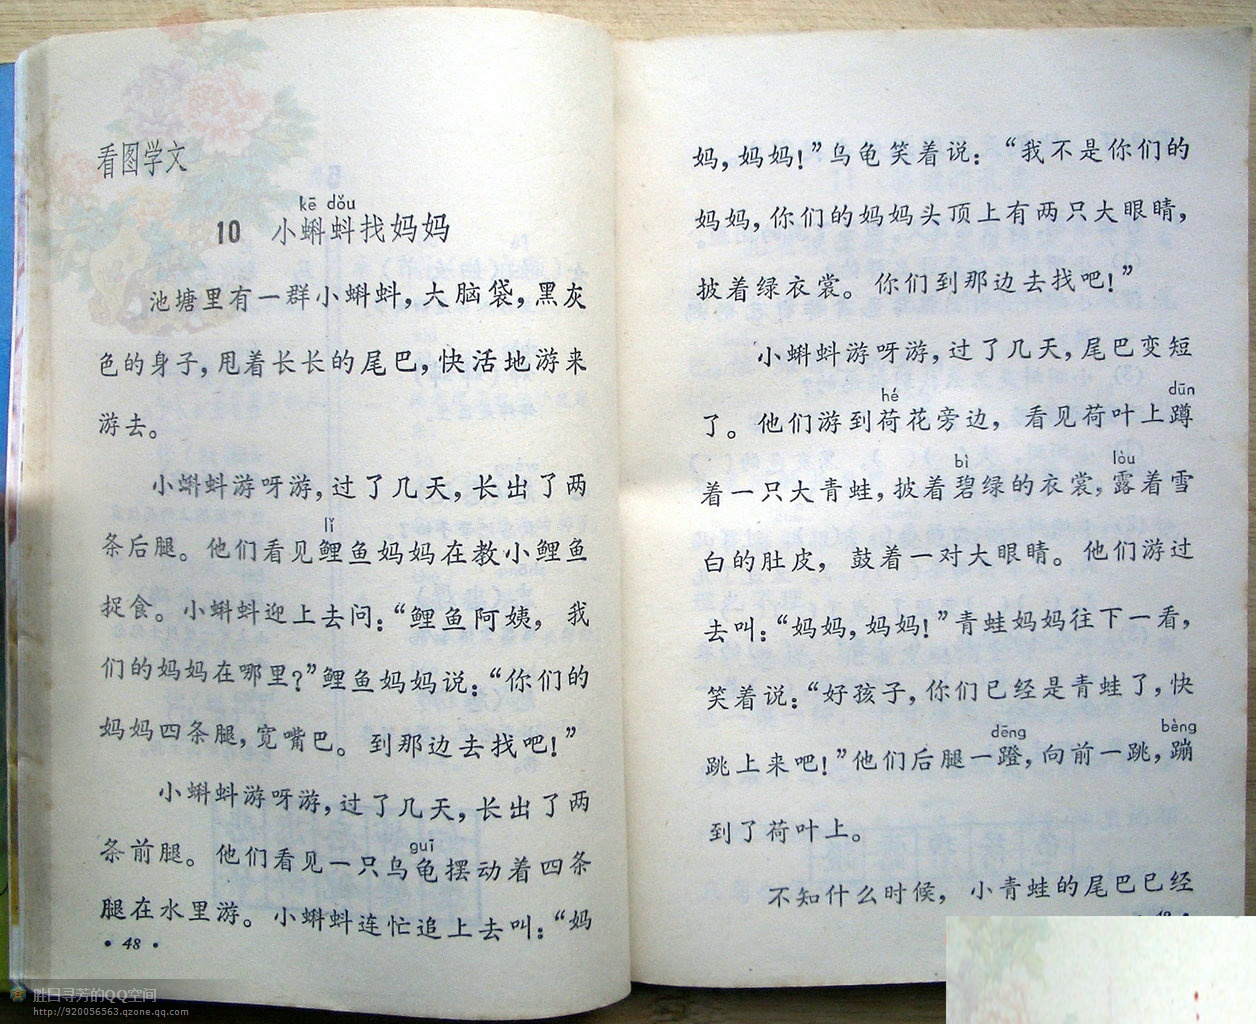 看图学文
kē dǒu
10 小蝌蚪找妈妈
池塘里有一群小蝌蚪，大脑袋，黑灰
色的身子，甩着长长的尾巴，快活地游来
游去。
小蝌蚪游呀游，过了几天，长出了两
lǐ
条后腿。他们看见鲤鱼妈妈在教小鲤鱼
捉食。小蝌蚪迎上去问：“鲤鱼阿姨，我
们的妈妈在哪里？”鲤鱼妈妈说：“你们的
妈妈四条腿，宽嘴巴。到那边去找吧！”
小蝌蚪游呀游，过了几天，长出了两
guī
条前腿。他们看见一只乌龟摆动着四条
腿在水里游。小蝌蚪连忙追上去叫：“妈
• 48 •
妈，妈妈！”乌龟笑着说：“我不是你们的
妈妈，你们的妈妈头顶上有两只大眼睛，
披着绿衣裳。你们到那边去找吧！”
小蝌蚪游呀游，过了几天，尾巴变短
hé dūn
了。他们游到荷花旁边，看见荷叶上蹲
bì lòu
着一只大青蛙，披着碧绿的衣裳，露着雪
白的肚皮，鼓着一对大眼睛。他们游过
去叫：“妈妈，妈妈！”青蛙妈妈往下一看，
笑着说：“好孩子，你们已经是青蛙了，快
dēng bèng
跳上来吧！”他们后腿一蹬，向前一跳，蹦
到了荷叶上。
不知什么时候，小青蛙的尾巴已经
胜日寻芳的QQ空间
http://920056563.qzone.qq.com